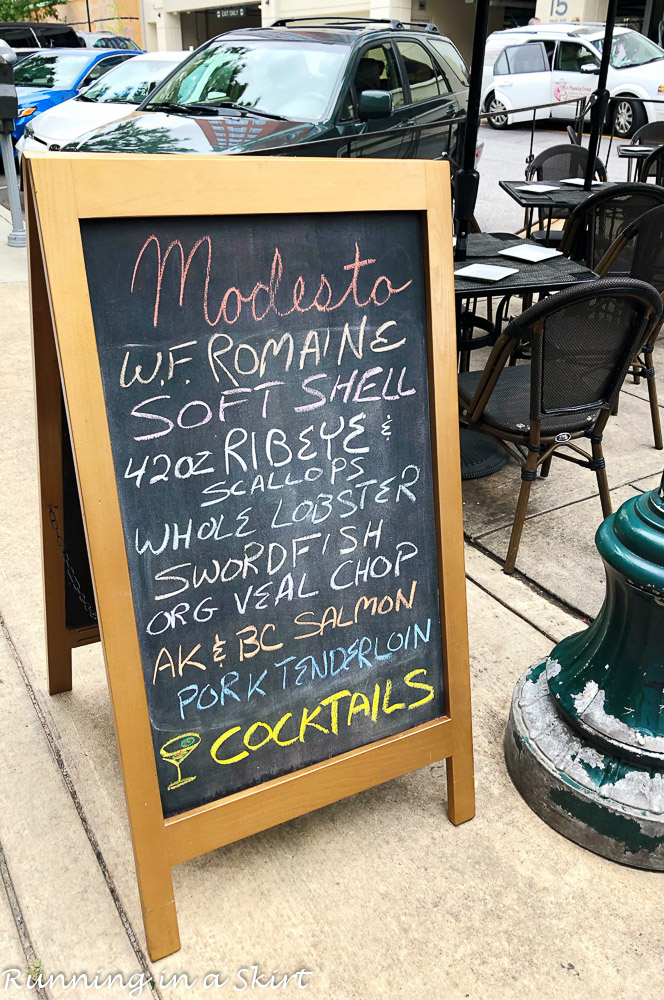 EXIT ONLY
15
Modesto
W.F. ROMAINE
SOFT SHELL
42oz RIBEYE &
SCALLOPS
WHOLE LOBSTER
SWORDFISH
ORG VEAL CHOP
AK & BC SALMON
PORK TENDERLOIN
COCKTAILS
Running in a Skirt